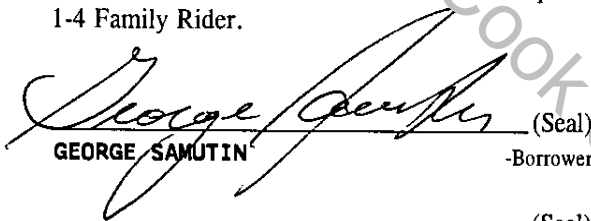 1-4 Family Rider.
Cook
George Samutin (Seal)
GEORGE SAMUTIN -Borrower
(Seal)